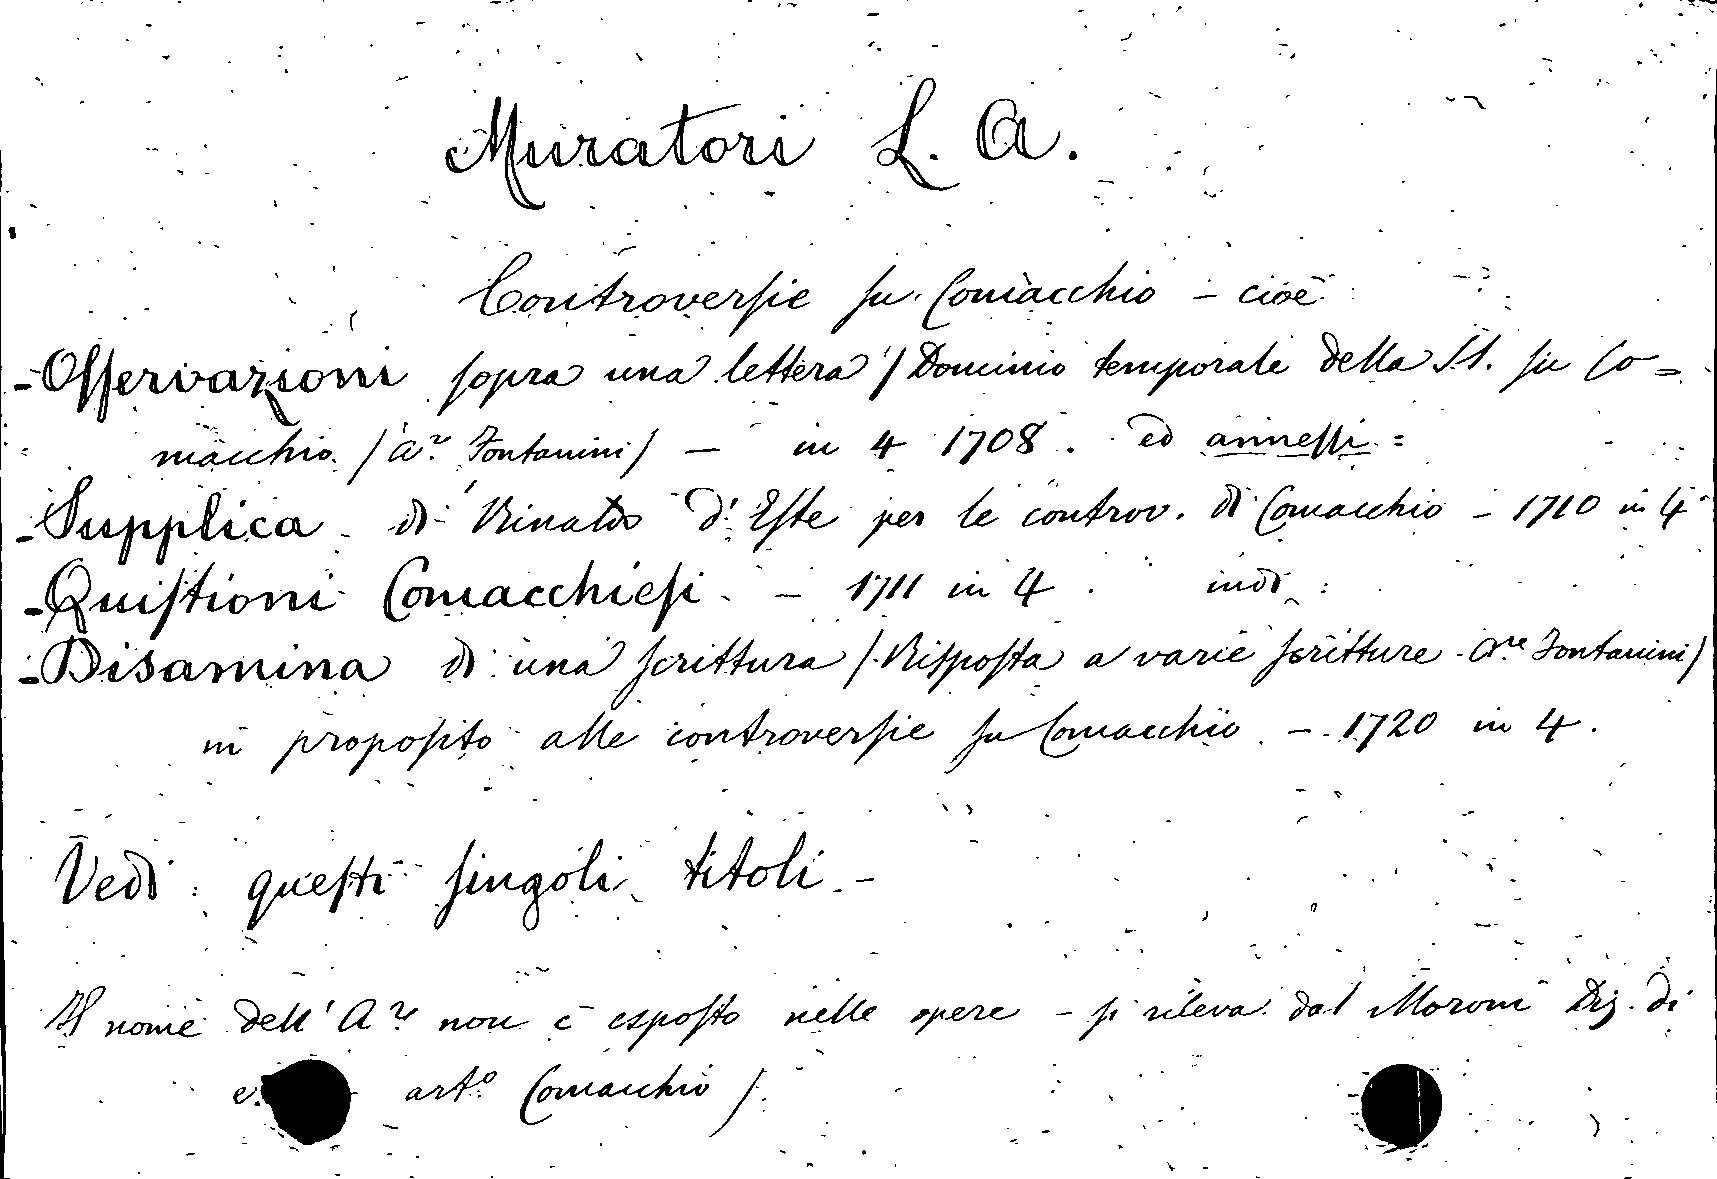 Muratori L. A.
Controversie su Comacchio - cioè
- Osservazioni sopra una lettera / Dominio temporale della S.S. su Co=
macchio / Are Fontanini / — in 4 1708. ed annessi =
- Supplica di Rinaldo d'Este per le controv. di Comacchio - 1710 in 4
- Quistioni Comacchiesi - 1711 in 4. indi:
- Disamina di una scrittura / Risposta a varie scritture Are Fontanini /
in proposito alle controversie su Comacchio - 1720 in 4.
Vedi questi singoli titoli -
Il nome dell'Are non è esposto nelle opere - si rileva dal Moroni Diz. di
e. arto Comacchio /